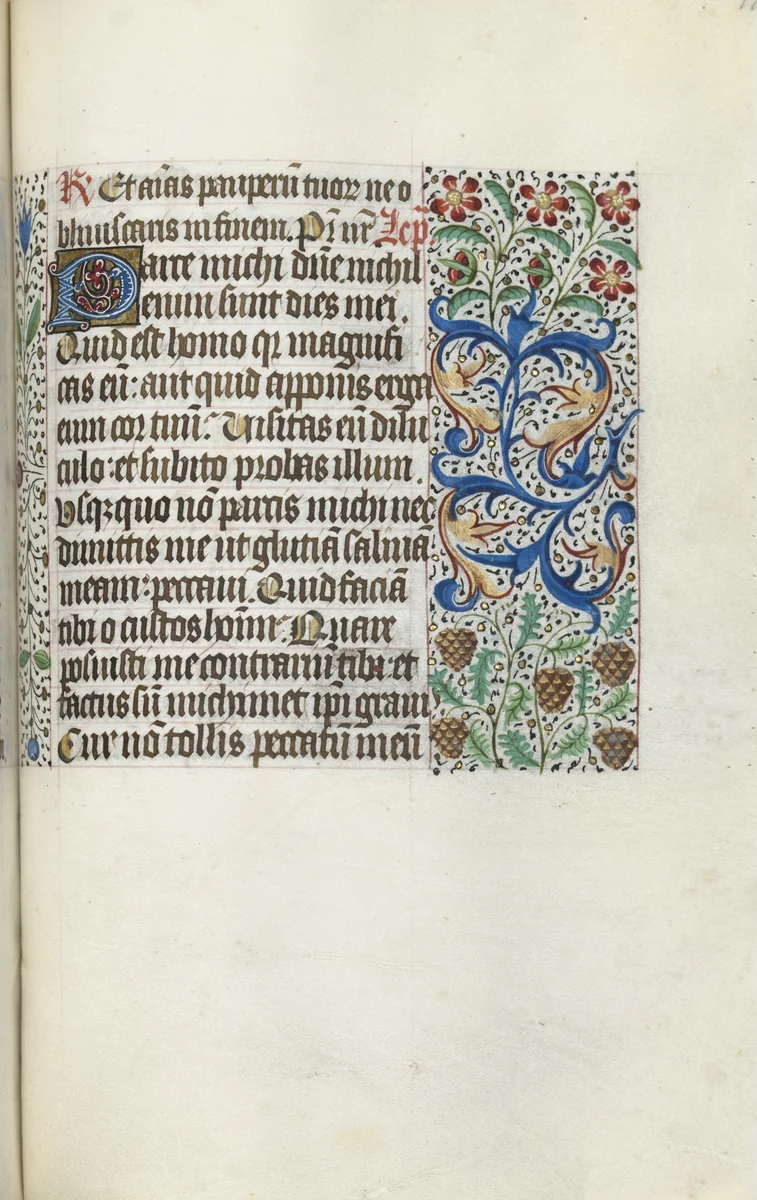 R Et aīas pauperū tuoꝝ ne o
bliuiscaris in finem. Pr̄ nr̄ Lcō.
Parce michi dn̄e nichil
enim sunt dies mei.
Quid est homo qꝛ magnifi
cas eū: aut quid apponis erga
eum cor tuū: Uisitas eū dilu
culo: et subito probas illum.
Vsqꝫquo nō parcis michi nec
dimittis me ut glutiā saliuā
meam: peccaui. Quid faciā
tibi o custos hoīm: Quare
posuisti me contrariū tibi: et
factus sū michimet ip̄i grauis
Cur nō tollis peccatū meū